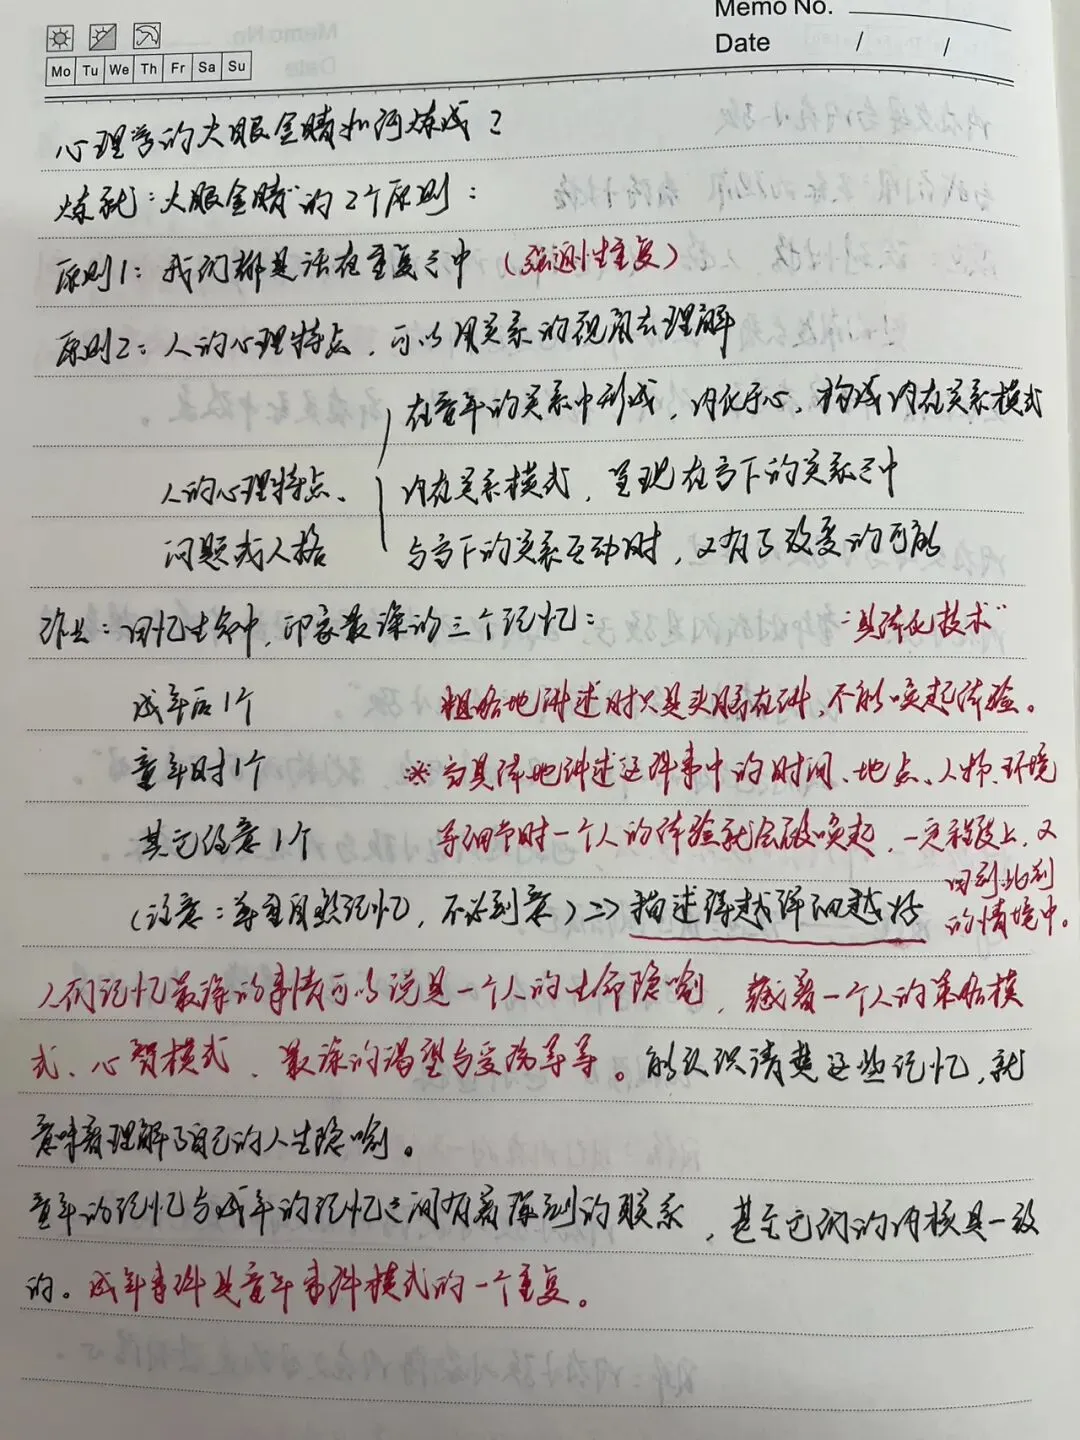 Memo No.
Date / /
Mo Tu We Th Fr Sa Su
心理学的火眼金睛如何炼成？
炼就"火眼金睛"的2个原则：
原则1：我们都是活在重复之中（强迫性重复）
原则2：人的心理特点，可以用关系的视角去理解
在童年的关系中形成，内化于心，构成内在关系模式
人的心理特点、
内在关系模式，呈现在当下的关系之中
问题或人格
与当下的关系互动时，又有了改变的可能
作业：回忆生命中，印象最深的三个记忆：
"具体化技术"
成年后1个
粗略地讲述时只是头脑在讲，不能唤起体验。
童年时1个
※当具体地讲述这件事中的时间、地点、人物、环境
其它任意1个
等细节时一个人的体验就会被唤起，一定程度上，又
回到此刻
的情境中。
（注意：尊重自然记忆，不必刻意）=> 描述得越详细越好
人们记忆最深的事情可以说是一个人的生命隐喻，藏着一个人的策略模
式、心智模式、最深的渴望与受伤等等。能认识清楚这些记忆，就
意味着理解了自己的人生隐喻。
童年的记忆与成年的记忆之间有着深刻的联系，甚至它们的内核是一致
的。成年事件是童年事件模式的一个重复。